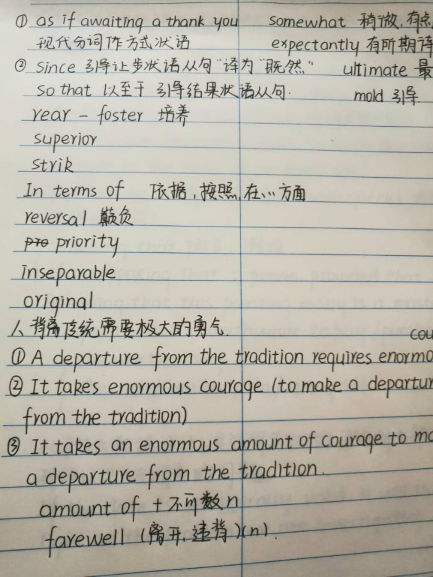 ① as if awaiting a thank you somewhat 稍微,有点
现代分词作方式状语 expectantly 有所期待
② since 引导让步状语从句"译为"既然" ultimate 最
so that 以至于 引导结果状语从句. mold 引导
rear - foster 培养
superior
strik
In terms of 依据,按照,在...方面
reversal 颠负
priority
inseparable
original
人背离传统需要极大的勇气. cou
① A departure from the tradition requires enormo
② It takes enormous courage (to make a departur
from the tradition)
③ It takes an enormous amount of courage to ma
a departure from the tradition.
amount of + 不可数n
farewell (离开,违背)(n).